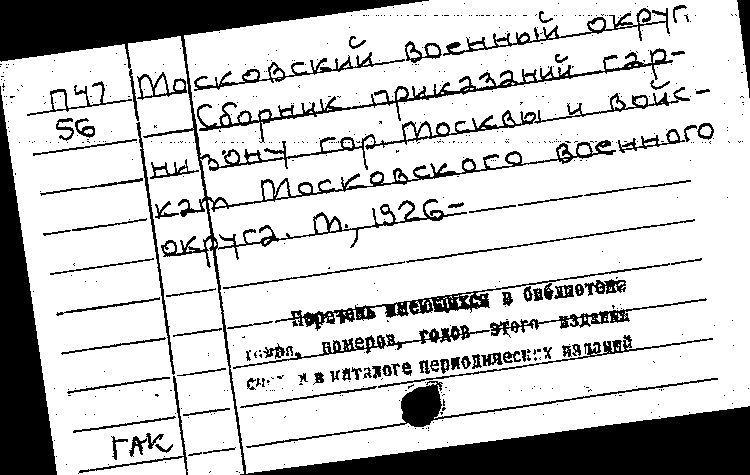 Московский военный округ.
П47
Сборник приказаний гар-
56
низону гор. Москвы и войс-
кам Московского военного
округа. М., 1926-
Перечень имеющихся в библиотеке
томов, номеров, годов этого издания
см. в каталоге периодических изданий
ГАК